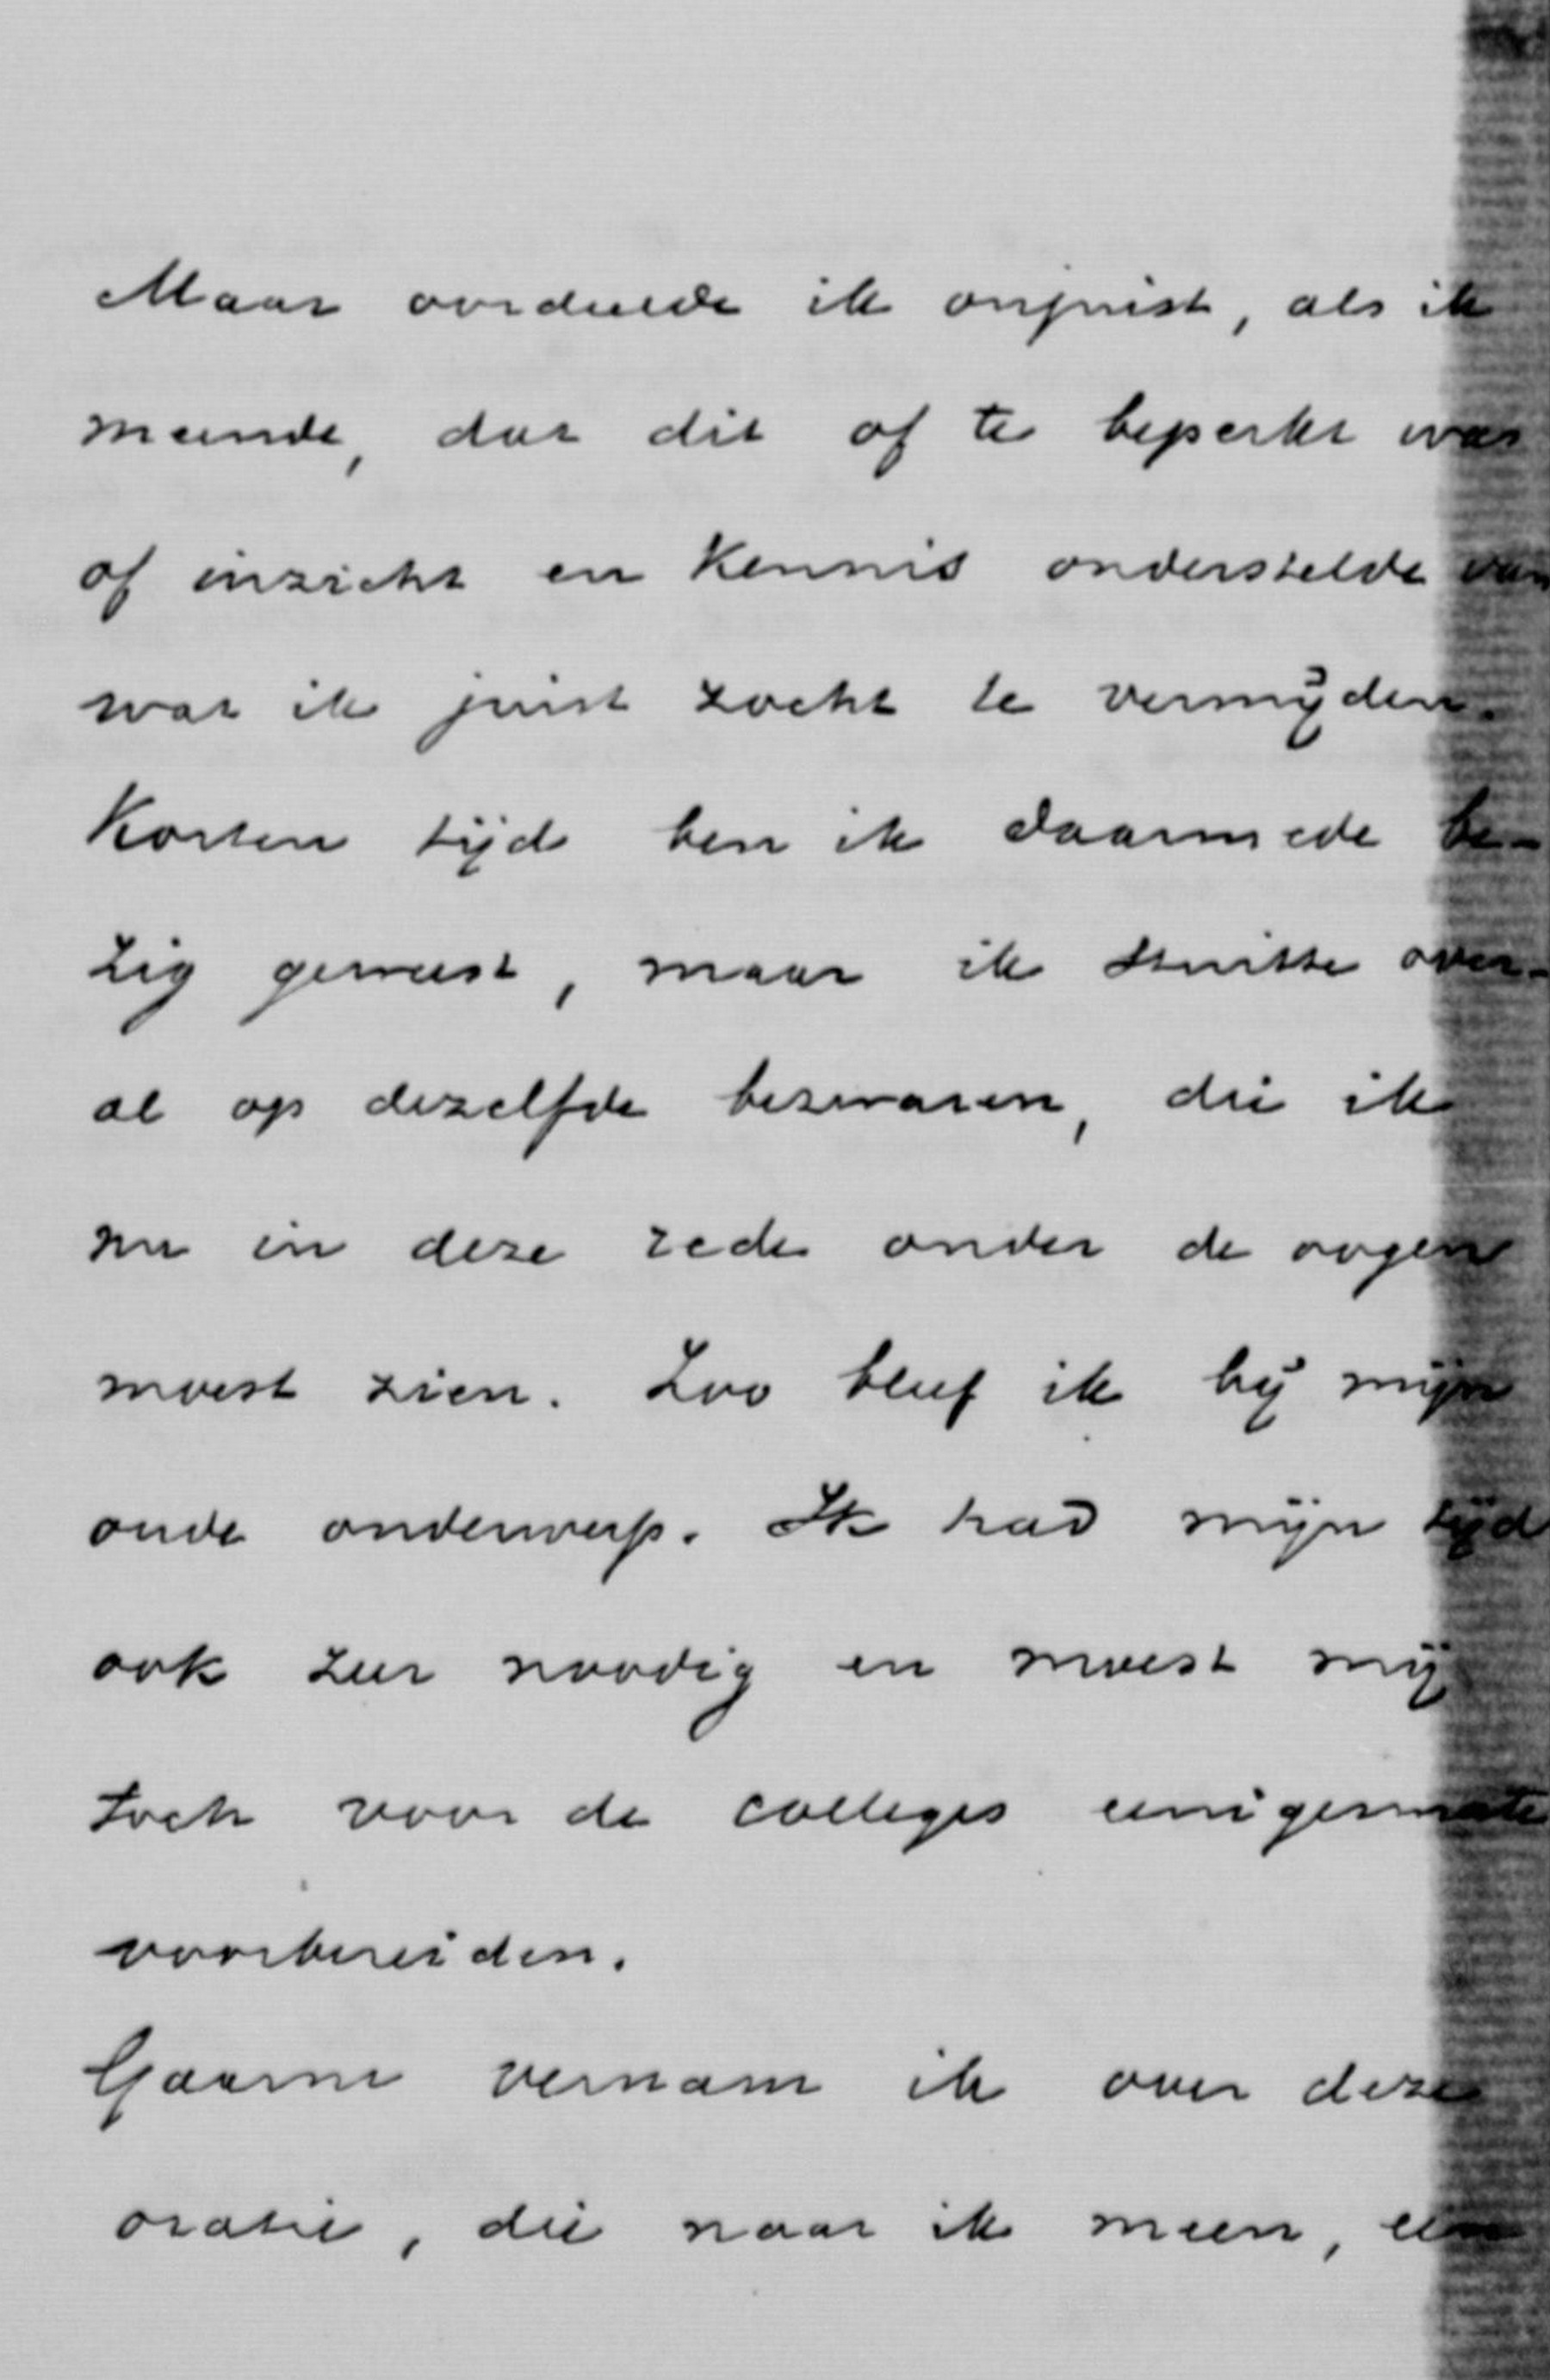 Maar oordeelde ik onjuist, als ik
meende, dat dit of te beperkt was
of inzicht en kennis onderstelde van
wat ik juist zocht te vermijden.
Korten tijd ben ik daarmede be-
zig geweest, maar ik stuitte over-
al op dezelfde bezwaren, die ik
nu in deze rede onder de oogen
moest zien. Zoo bleef ik bij mijn
oude onderwerp. Ik had mijn tijd
ook zeer noodig en moest mij
toch voor de colleges eenigermate
voorbereiden.
Gaarne vernam ik over deze
oratie, die naar ik meen, een